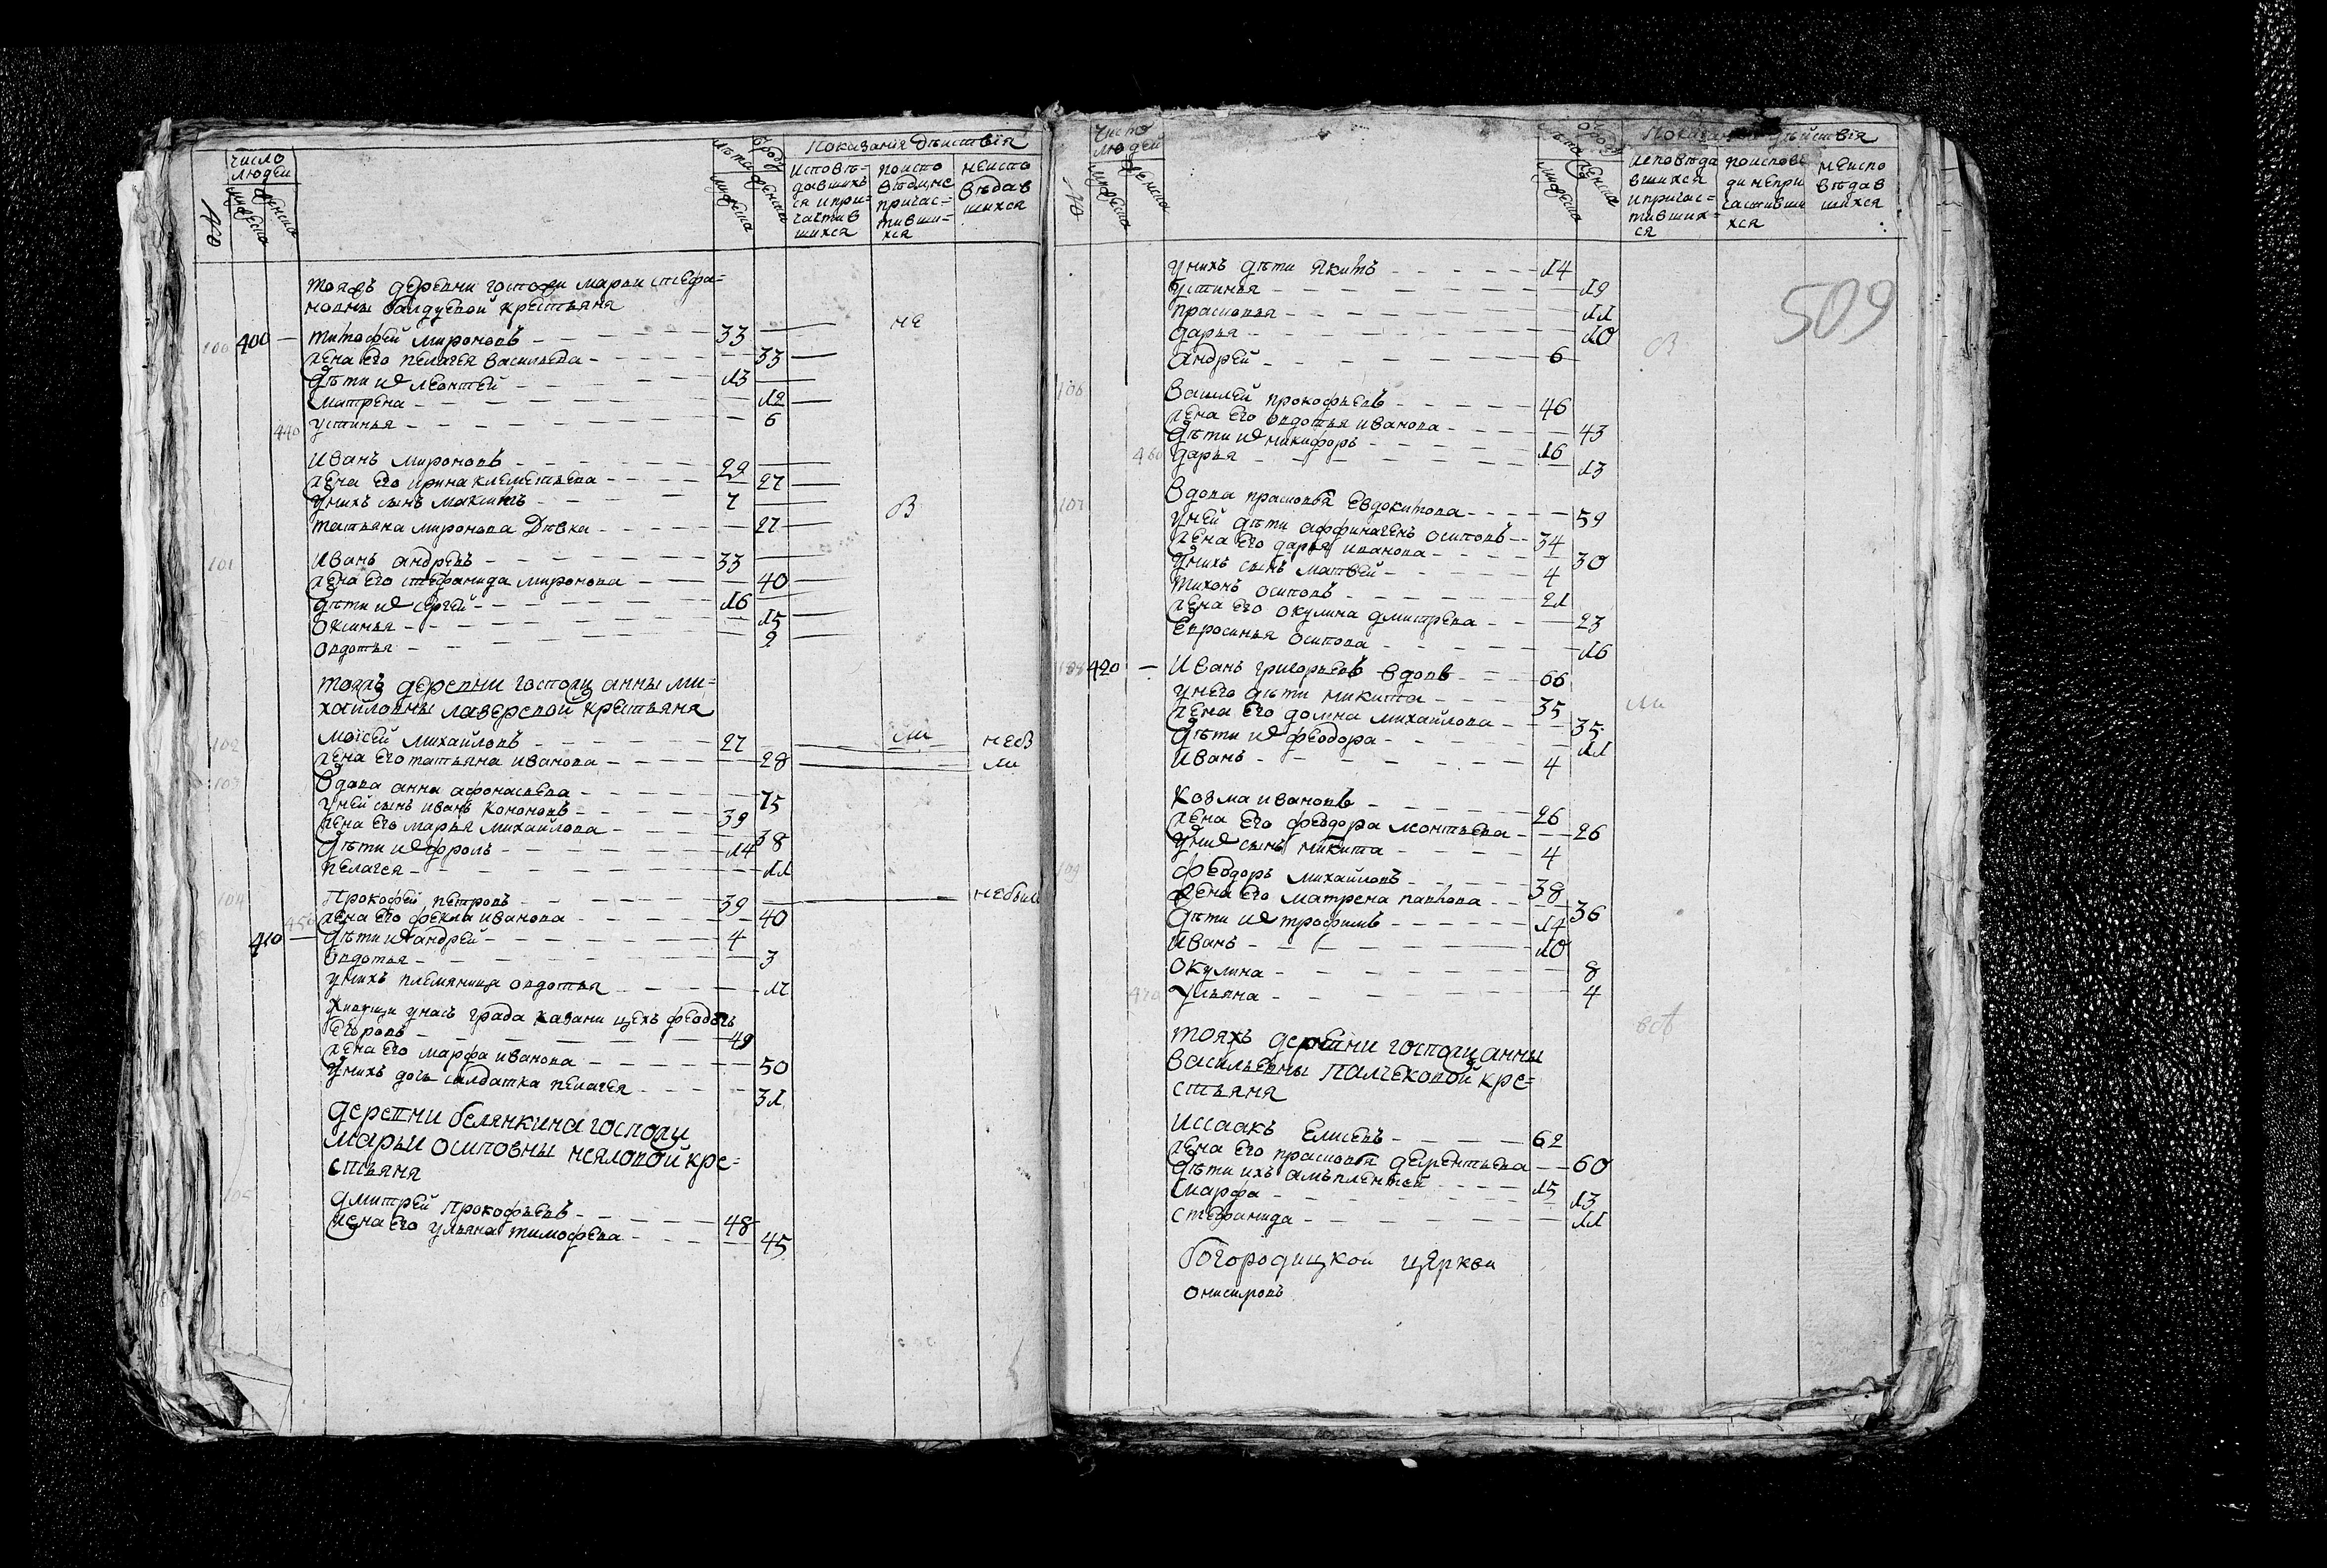 число людей
№
мужеска
женска
лѣта
мужеска
ѿ роду
женска
Показанiя Дѣиствiя
исповѣ-
давшихъ
ся и при-
частив
шихся
поиспо
вѣди не
причас=
тивши=
хся
неиспо
вѣдав
шихся
тояжъ деревни госпожи марьи стефа=
новны балдуевой крестьяня
100 400 — тимофей мироновъ 33 не
жена его пелагея васильева 33
дѣти ихъ леонтей 13
матрена 12
440 устинья 6
Иванъ мироновъ 29
жена его ирина клеметьева 27
у нихъ сынъ максимъ 7
татьяна миронова Дѣвка 27
101 Иванъ андреевъ 33
жена его стефанида миронова 40
дѣти ихъ сергей 16
оксинья 15
овдотья 2
тояжъ деревни госпожи анны ми=
хайловны лазеревой крестьяня
102 Моисей михайловъ 27
жена его татьяна иванова 28
103 Вдова анна афонасьева 75
у ней сынъ иванъ кононовъ 39
жена его марья михайлова 38
дѣти ихъ фролъ 14
пелагея 11
104 Прокофей петровъ 39 небыл
450 жена его фекла иванова 40
410 — дѣти ихъ андрей 4
овдотья 3
у нихъ племяница овдотья 17
Живущи унасъ града казани цехъ феодоръ
егоровъ 49
жена его марфа иванова 50
у нихъ дочь салдатка пелагея 31
деревни белянкина госпожи
марьи осиповны неяловой кре=
стьяня
105 дмитрей прокофьевъ 48
жена его ульяна тимофева 45
число
людей
№
мужеска
женска
лѣта
мужеска
ѿ роду
женска
Показанiя дѣйствiя
исповѣда
вшихся
и причас=
тивших=
ся
поиспове
ди непри
частивши
хся
неиспо
вѣдав
шихся
509
у нихъ дѣти якимъ 14
устинья 12
прасковья 11
дарья 10
андрей 6
106 Василей прокофьевъ 46
жена его овдотья иванова 43
дѣти ихъ никифоръ 16
460 дарья 13
107 Вдова прасковья евдокимова 59
у ней дѣти аффиногенъ осиповъ 34
жена его дарья иванова 30
у нихъ сынъ матвей 4
тихонъ осиповъ 21
жена его окулина дмитрева 23
евросинья осипова 16
108 420 — Иванъ григорьевъ вдовъ 66
у него дѣти никита 35
жена его домна михайлова 35
дѣти ихъ феодора 11
иванъ 4
козма ивановъ 26
жена его феодора леонтьева 26
у нихъ сынъ никита 4
109 феодоръ михайловъ 38
жена его матрена павлова 36
дѣти ихъ трофимъ 14
иванъ 10
окулина 8
470 ульяна 4
всѣ
тояжъ деревни госпожи анны
васильевны палчековой кре=
стьяня
Иссаакъ елисеевъ 62
жена его прасковья дерентьева 60
дѣти ихъ амъплентей 15
марфа 13
стефанида 11
богородицкой церкви
онисимовъ